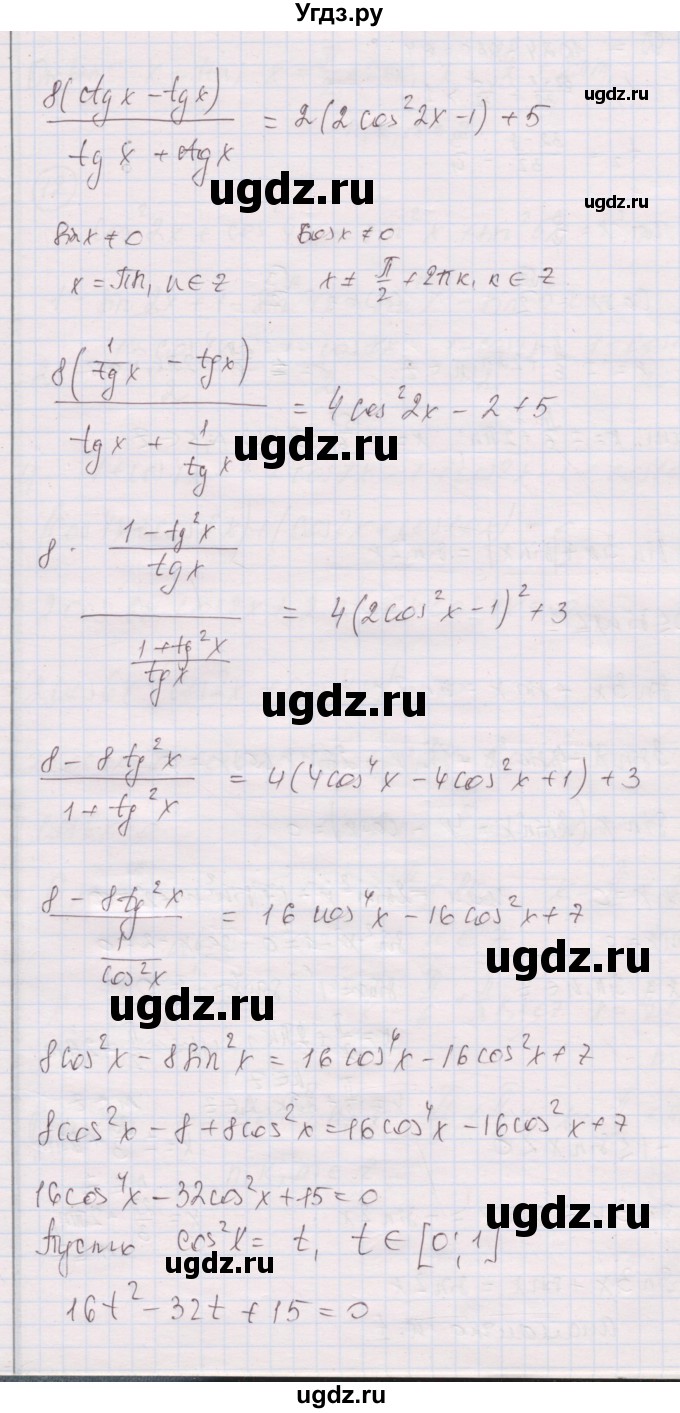 Угдз.ру
8(ctg x - tg x) / (tg x + ctg x) = 2(2cos²2x - 1) + 5
ugdz.ru
ugdz.ru
ugdz.ru
sin x ≠ 0 cos x ≠ 0
x = πn, n ∈ Z x ≠ π/2 + 2πk, k ∈ Z
8(1/tg x - tg x) / (tg x + 1/tg x) = 4cos²2x - 2 + 5
ugdz.ru
8 · ((1 - tg²x)/tg x) / ((1 + tg²x)/tg x) = 4(2cos²x - 1)² + 3
ugdz.ru
(8 - 8tg²x) / (1 + tg²x) = 4(4cos⁴x - 4cos²x + 1) + 3
(8 - 8tg²x) / (1/cos²x) = 16cos⁴x - 16cos²x + 7
ugdz.ru
ugdz.ru
8cos²x - 8sin²x = 16cos⁴x - 16cos²x + 7
8cos²x - 8 + 8cos²x = 16cos⁴x - 16cos²x + 7
16cos⁴x - 32cos²x + 15 = 0
ugdz.ru
Пусть cos²x = t, t ∈ [0; 1]
ugdz.ru
16t² - 32t + 15 = 0
ugdz.ru